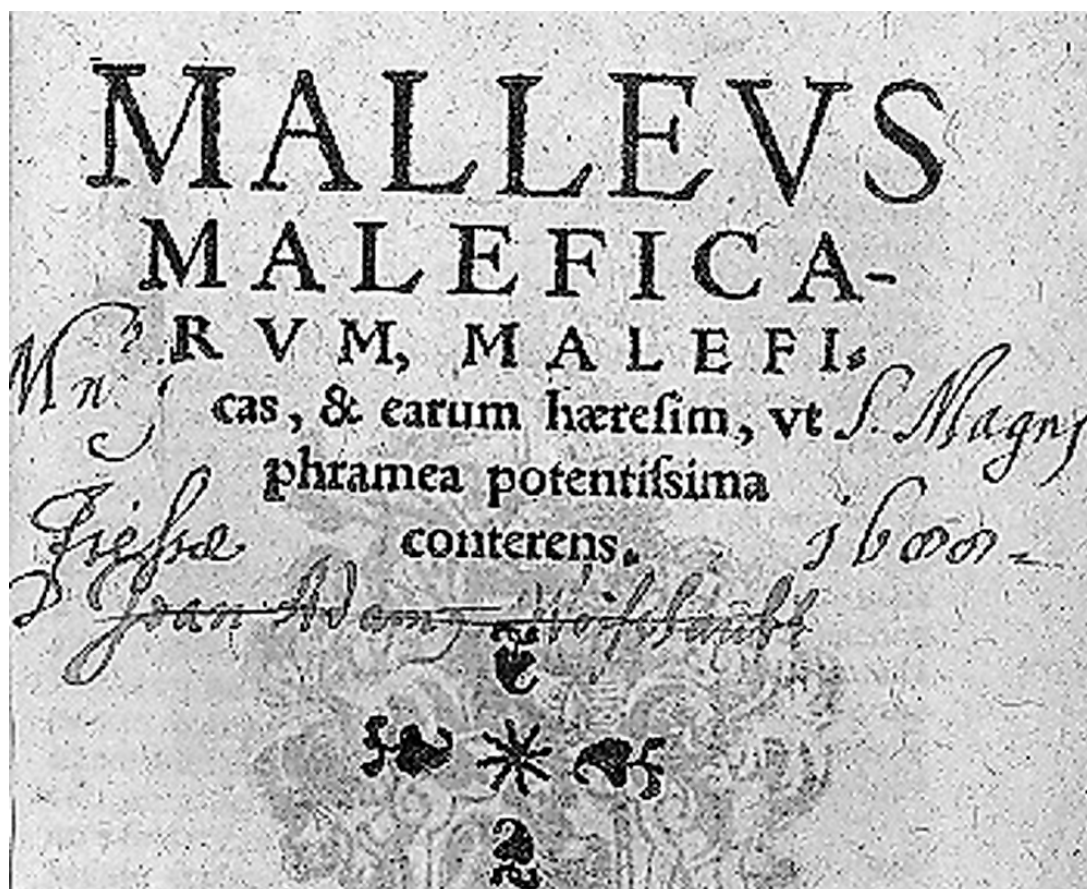 MALLEVS
MALEFICA-
RVM, MALEFI-
cas, & earum hæreſim, vt
phramea potentiſsima
conterens.
S. Magnj
1600
Joan Adam